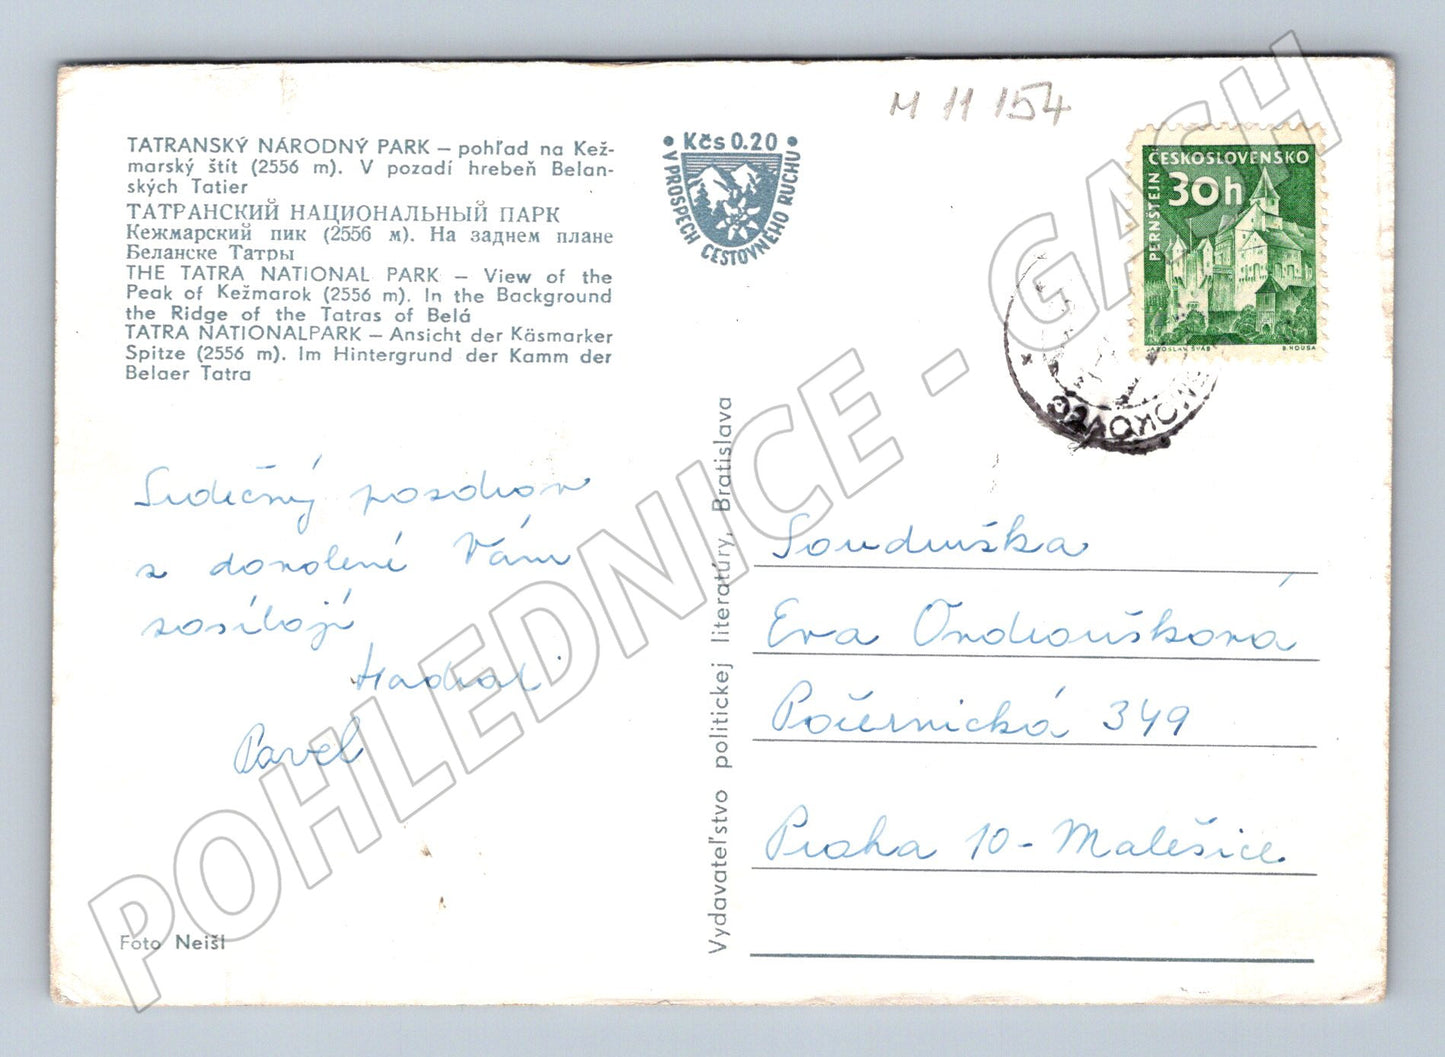 M 11 154
TATRANSKÝ NÁRODNÝ PARK – pohľad na Kež-
marský štít (2556 m). V pozadí hrebeň Belan-
ských Tatier
ТАТРАНСКИЙ НАЦИОНАЛЬНЫЙ ПАРК
Кежмарский пик (2556 м). На заднем плане
Беланске Татры
THE TATRA NATIONAL PARK – View of the
Peak of Kežmarok (2556 m). In the Background
the Ridge of the Tatras of Belá
TATRA NATIONALPARK – Ansicht der Käsmarker
Spitze (2556 m). Im Hintergrund der Kamm der
Belaer Tatra
• Kčs 0.20 •
V PROSPECH CESTOVNÉHO RUCHU
ČESKOSLOVENSKO
30h
PERNŠTEJN
JAROSLAV ŠVÁB
B. HOUSA
Srdečný pozdrav
z dovolené Vám
zosílají
Pavel
Vydavateľstvo politickej literatúry, Bratislava
Soudružka
Eva Ondroušková
Počernická 349
Praha 10 - Malešice
Foto Neišl
POHLEDNICE - GASH